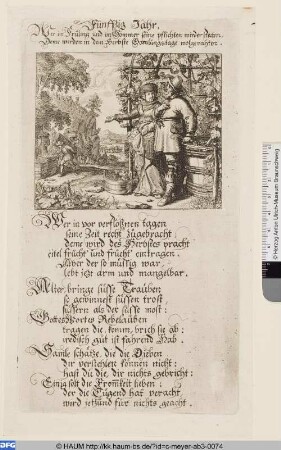 Fünfftzig Jahr.
Wer im Früling und im Sommer seine pflichten nie versäumt
Dem werden in dem Herbste
Wer in vor verfloßnen tagen
seine Zeit recht zugebracht,
deme wird des Herbstes pracht
eitel frücht und frücht eintragen.
Aber der so müssig war,
lebt itzt arm und mangelbar.
Alter bringe süsse Trauben
so gewinnest süssen trost,
süssern als der süsse most:
Rebelauben
tragen die, komm, brich sie ab:
redlich gut ist fahrend Hab.
Samle schätze, die die Dieben
dir verstehlen können nicht:
hast du die, dir nichts gebricht:
Einzig solt die Fromkeit lieben
der die Tugend hat veracht,
wird ietzund für nichts geacht.
© Herzog Anton Ulrich-Museum Braunschweig
DFG
© HAUM http://kk.haum-bs.de/?id=c-meyer-ab3-0074